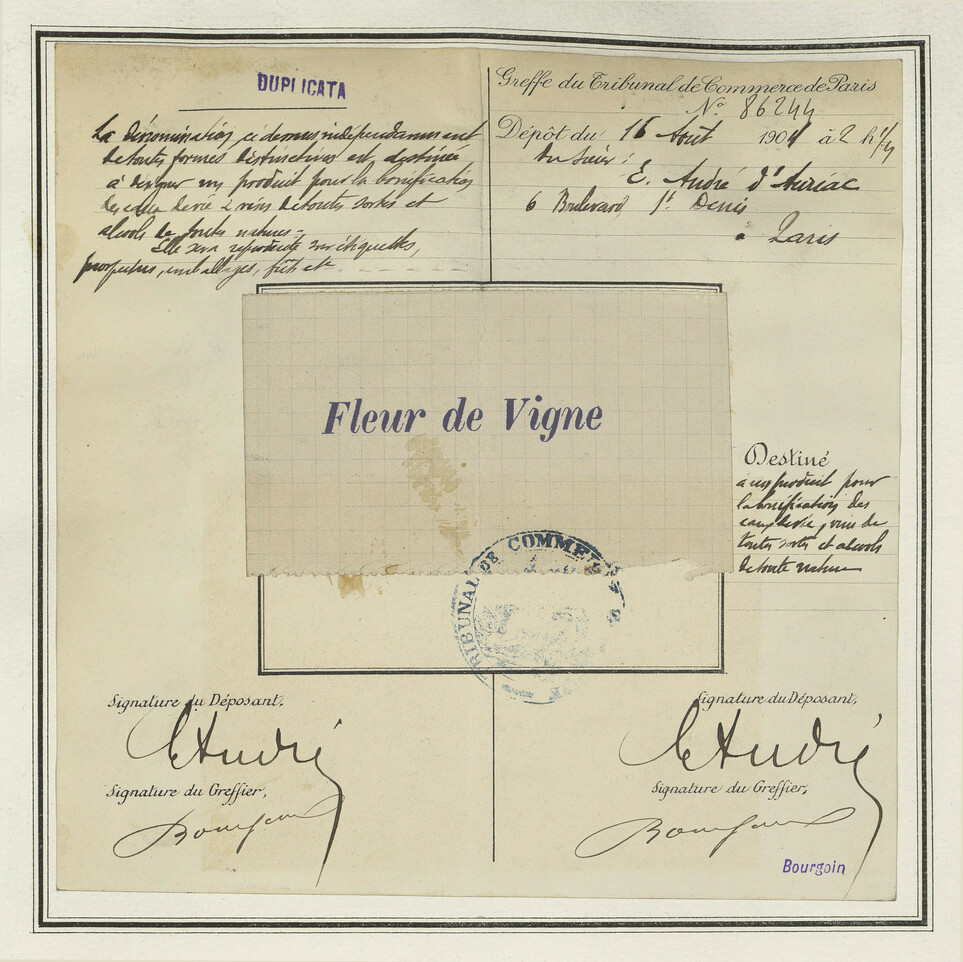 DUPLICATA
La dénomination ci dessus indépendamment
de toutes formes distinctives est destinée
à désigner un produit pour la bonification
des eaux de vie & vins de toutes sortes et
alcools de toutes natures =
Elle sera reproduite sur étiquettes,
prospectus, emballages, fûts etc
Greffe du Tribunal de Commerce de Paris
N° 86244
Dépôt du 16 Août 1904 à 2 h 1/4
du sieur :
E. André d'Auriac
6 Boulevard St. Denis
à Paris
Fleur de Vigne
Destiné
à un produit pour
la bonification des
eaux de vie, vins de
toutes sortes et alcools
de toute nature
TRIBUNAL DE COMMERCE
Signature du Déposant,
EAndré
Signature du Greffier,
Bourgoin
Signature du Déposant,
EAndré
Signature du Greffier,
Bourgoin
Bourgoin